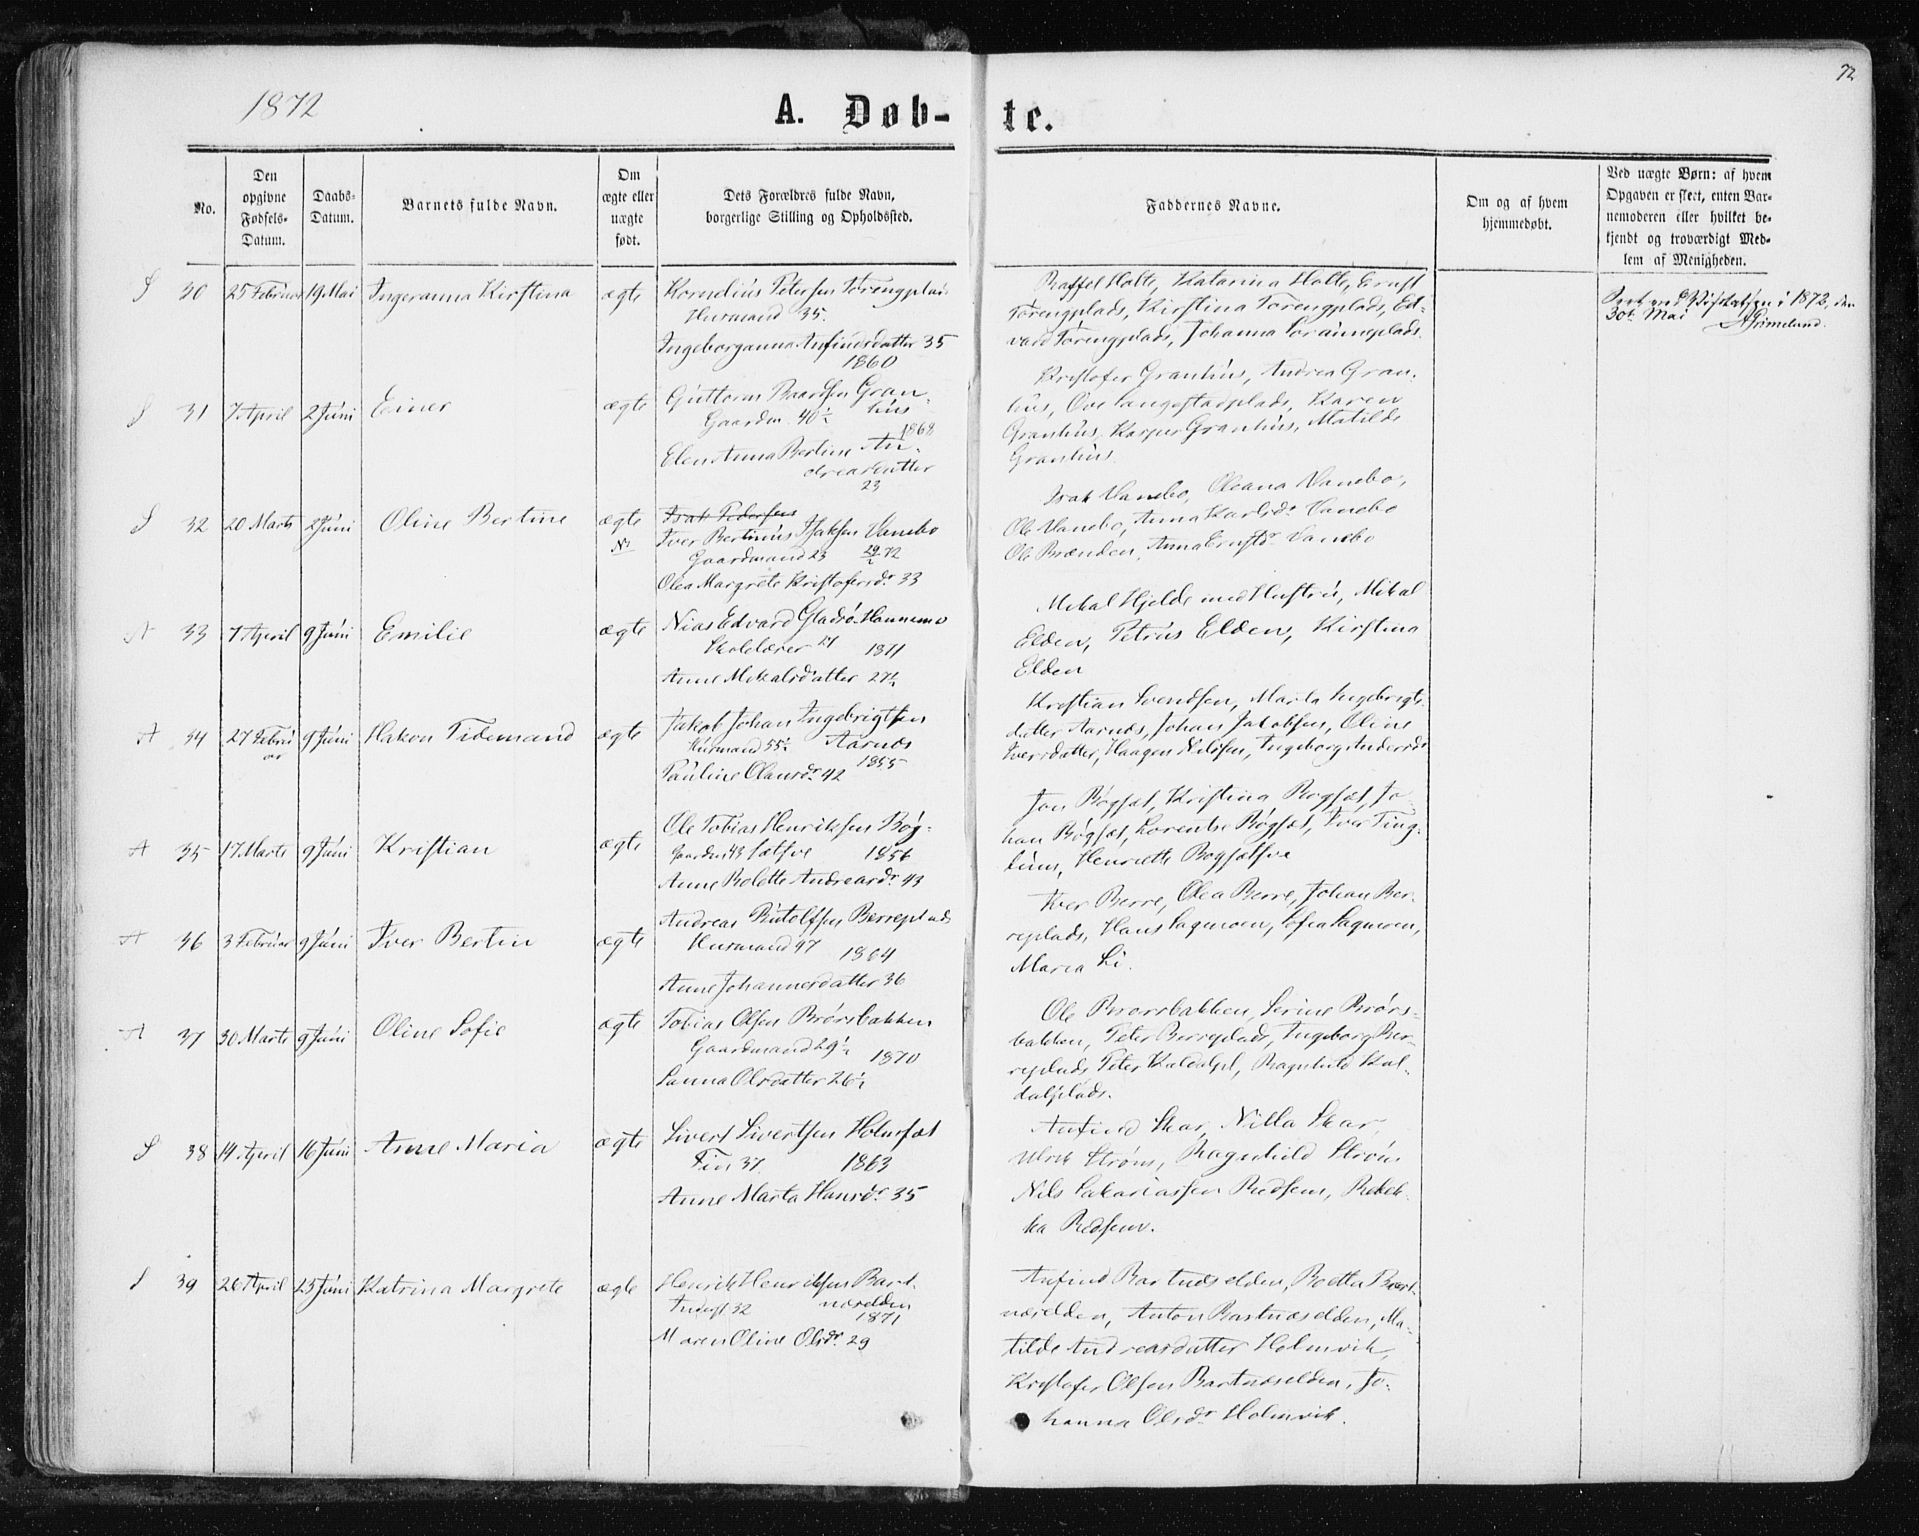 1872
A. Døb-
te.
72
No.
Den opgivne Fødsels-Datum.
Daabs-Datum.
Barnets fulde Navn.
Om ægte eller uægte født.
Dets Forældres fulde Navn, borgerlige Stilling og Opholdssted.
Faddernes Navne.
Om og af hvem hjemmedøbt.
Ved uægte Børn: af hvem Opgaven er skeet, enten Barnemoderen eller hvilket bekjendt og troværdigt Medlem af Menigheden.
S 30 25 Februar 19 Mai Ingeranna Kirstina ægte Kornelius Petersen
Husmand 35.
Ingeboranna Anfindsdatter 35
1860
Holte, Katarina Holte, Ernst
Kirstina
Johanna
1872, den
30te Mai
S 31 7 April 2 Juni Einer ægte Guttorm Baardsen Gran-
hus
Gaardm. 40½
1868
Elen Anna Bertine An-
dreasdatter
23
Kristofer Granhus, Andrea Gran-
hus, Ove Langestadplads, Karen
Granhus, Kasper Granhus, Matilde
Granhus.
S 32 20 Marts 2 Juni Oline Bertine ægte Isak Pedersen
Iver Bertinus Isaksen Vanebo
Gaardmand 23 72
Olea Margrete Kristofersdr 33
Isak Vanebo, Oleana Vanebo,
Ole Vanebo, Anna Karlsdr Vanebo
Ole Brænden, Anna Ernstdr Vanebo
A 33 7 April 9 Juni Emilie ægte Nias Edvard Gladsø Hannemo
Skolelærer 1871
Anne Mikalsdatter 27½
Mikal Hjelde med Hustru, Mikal
Elden, Petrus Elden, Kirstina
Elden
A 34 27 Febru
ar 9 Juni Hakon Tidemand ægte Jakob Johan Ingebrigtsen
Husmand 55½ Aarnøs
1855
Pauline Olausdr 42
Kristian Svendsen, Marta Ingebrigts
datter Aarnøs, Johan Jakobsen, Oline
Iversdatter, Haagen Nilsen, Ingeborg Andersdr
A 35 17 Marts 9 Juni Kristian ægte Ole Tobias Henriksen Bøg-
Gaardm 43 1856
Anne Bolette Andreasdr 43
Jon Bøgset, Kristina Bøgset, Jo-
han Bøgset, Lorentse Bøgset, Iver Ting-
Henriette
A 36 3 Februar 9 Juni Iver Bertin ægte Andreas Rutolfsen Berreplads
Husmand 47
1864
Anne Johannesdatter 36
Iver Berre, Olea Berre, Johan Ber-
replads, Hans Sagmoen, Sofia Sagmoen,
Maria Li.
A 37 30 Marts 9 Juni Oline Sofie ægte Tobias Olsen Brørsbakken
Gaardmand 29½
1870
Sanna Olsdatter 26½
Ole Brørsbakken, Serine Brørs-
bakken, Peter Berreplads, Ingeborg Ber-
replads, Peter Kaldalpl, Ragnhild Kal-
dalplads.
S 38 14 April 16 Juni Anne Maria ægte Sivert Sivertsen Holmset
37 1863
Anne Marta Hansdr 35
Anfind Skar, Nilla Skar,
Ulrik Strøm, Ragnhild Strøm
Nils Sakariassen Redsem, Rebek-
ka Redsem.
S 39 26 April 23 Juni Katrina Margrete ægte Henrik Henriksen Bart-
næselden
Inderst 32
1871
Maren Oline Olsdr 29
Anfind Bartnæselden, Beetha Bart-
næselden, Anton Bartnæselden, Ma-
tilde Andreasdatter Holmvik,
Kristofer Olsen Bartnæselden, Jo-
hanna Olsdr Holmvik.